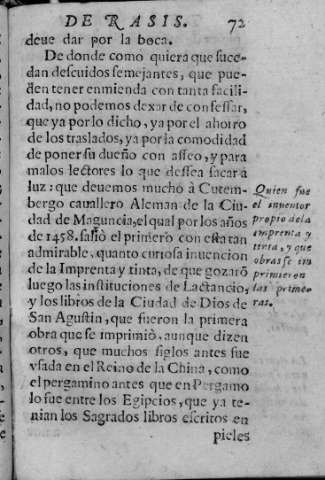 DE RASIS. 72
deue dar por la boca.
De donde como quiera que suce-
dan descuidos semejantes, que pue-
den tener enmienda con tanta facili-
dad, no podemos dexar de confessar,
que ya por lo dicho, ya por el ahorro
de los traslados, ya por la comodidad
de poner su dueño con asseo, y para
malos lectores lo que dessea sacar à
luz: que deuemos mucho à Cutem-
bergo cauallero Aleman de la Ciu-
dad de Maguncia, el qual por los años
de 1458. salió el primero con esta tan
admirable, quanto curiosa inuencion
de la Imprenta y tinta, de que gozarõ
luego las instituciones de Lactancio,
y los libros de la Ciudad de Dios de
San Agustin, que fueron la primera
obra que se imprimiò, aunque dizen
otros, que muchos siglos antes fue
vsada en el Reino de la China, como
el pergamino antes que en Pergamo
lo fue entre los Egipcios, que ya te-
nian los Sagrados libros escritos en
pieles
Quien fue
el inuentor
propio de la
imprenta y
tinta, y que
obras se im
primieron
las prime-
ras.